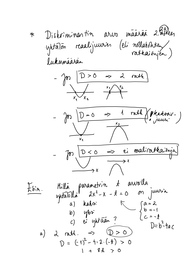 * Diskriminantin arvo määrää 2. asteen
yhtälön reaalijuurien (eli
ratkaisujen)
lukumäärän
- Jos D > 0 → 2 ratk.
x₁ x₂ x₁ x₂
- Jos D = 0 → 1 ratk.
- Jos D < 0 → ei reaaliratkaisuja
x x
Esim. Millä parametrin k arvoilla
yhtälöllä 2x² - x - k = 0 on
a) kaksi
b) yksi
c) ei yhtään ?
a = 2
b = -1
c = -k
D = b² - 4ac
a) 2 ratk. ⇒ D > 0
D = (-1)² - 4·2·(-k) > 0
1 + 8k > 0